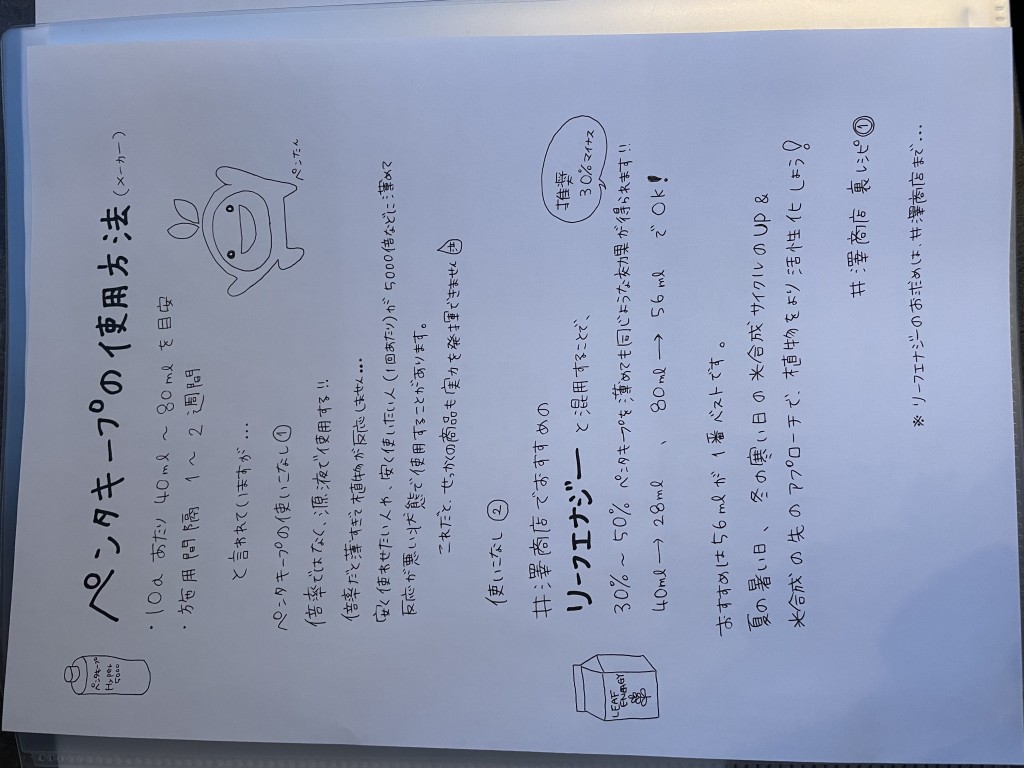 ペンタキープの使用方法(メーカー)
ペンタキープ
Hyper
5000
・10a あたり 40ml ~ 80ml を目安
・施用間隔 1 ~ 2 週間
と言われていますが…
ペンたん
ペンタキープの使いこなし①
倍率ではなく、源液で使用する!!
倍率だと薄すぎて植物が反応しません…
安く使わせたい人や、安く使したい人(1回あたり)が5000倍などに薄めて
反応が悪い状態で使用することがあります。
これだと、せっかくの商品も実力を発揮できません
使いこなし ②
井澤商店でおすすめの
リーフエナジー と混用することで、
推奨
30%マイナス
LEAF
ENERGY
30% ~ 50% ペンタキープを薄めても同じような効果が得られます!!
40ml → 28ml 、 80ml → 56ml で OK!
おすすめは56mlが1番ベストです。
夏の暑い日、冬の寒い日の光合成サイクルのUP &
光合成の先のアプローチで、植物をより活性化しよう!
井澤商店 裏レシピ①
※ リーフエナジーのお求めは、井澤商店まで…